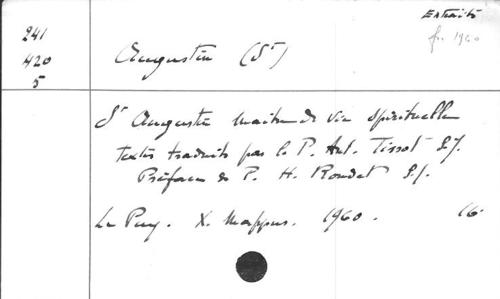 Extraits
fr. 1960
241
420
5
Augustin (St)
St Augustin maître de vie spirituelle
textes traduits par le P. Ant. Tissot S.j.
Préface de P. H. Rondet S.j.
Le Puy. X. Mappus. 1960. 16.